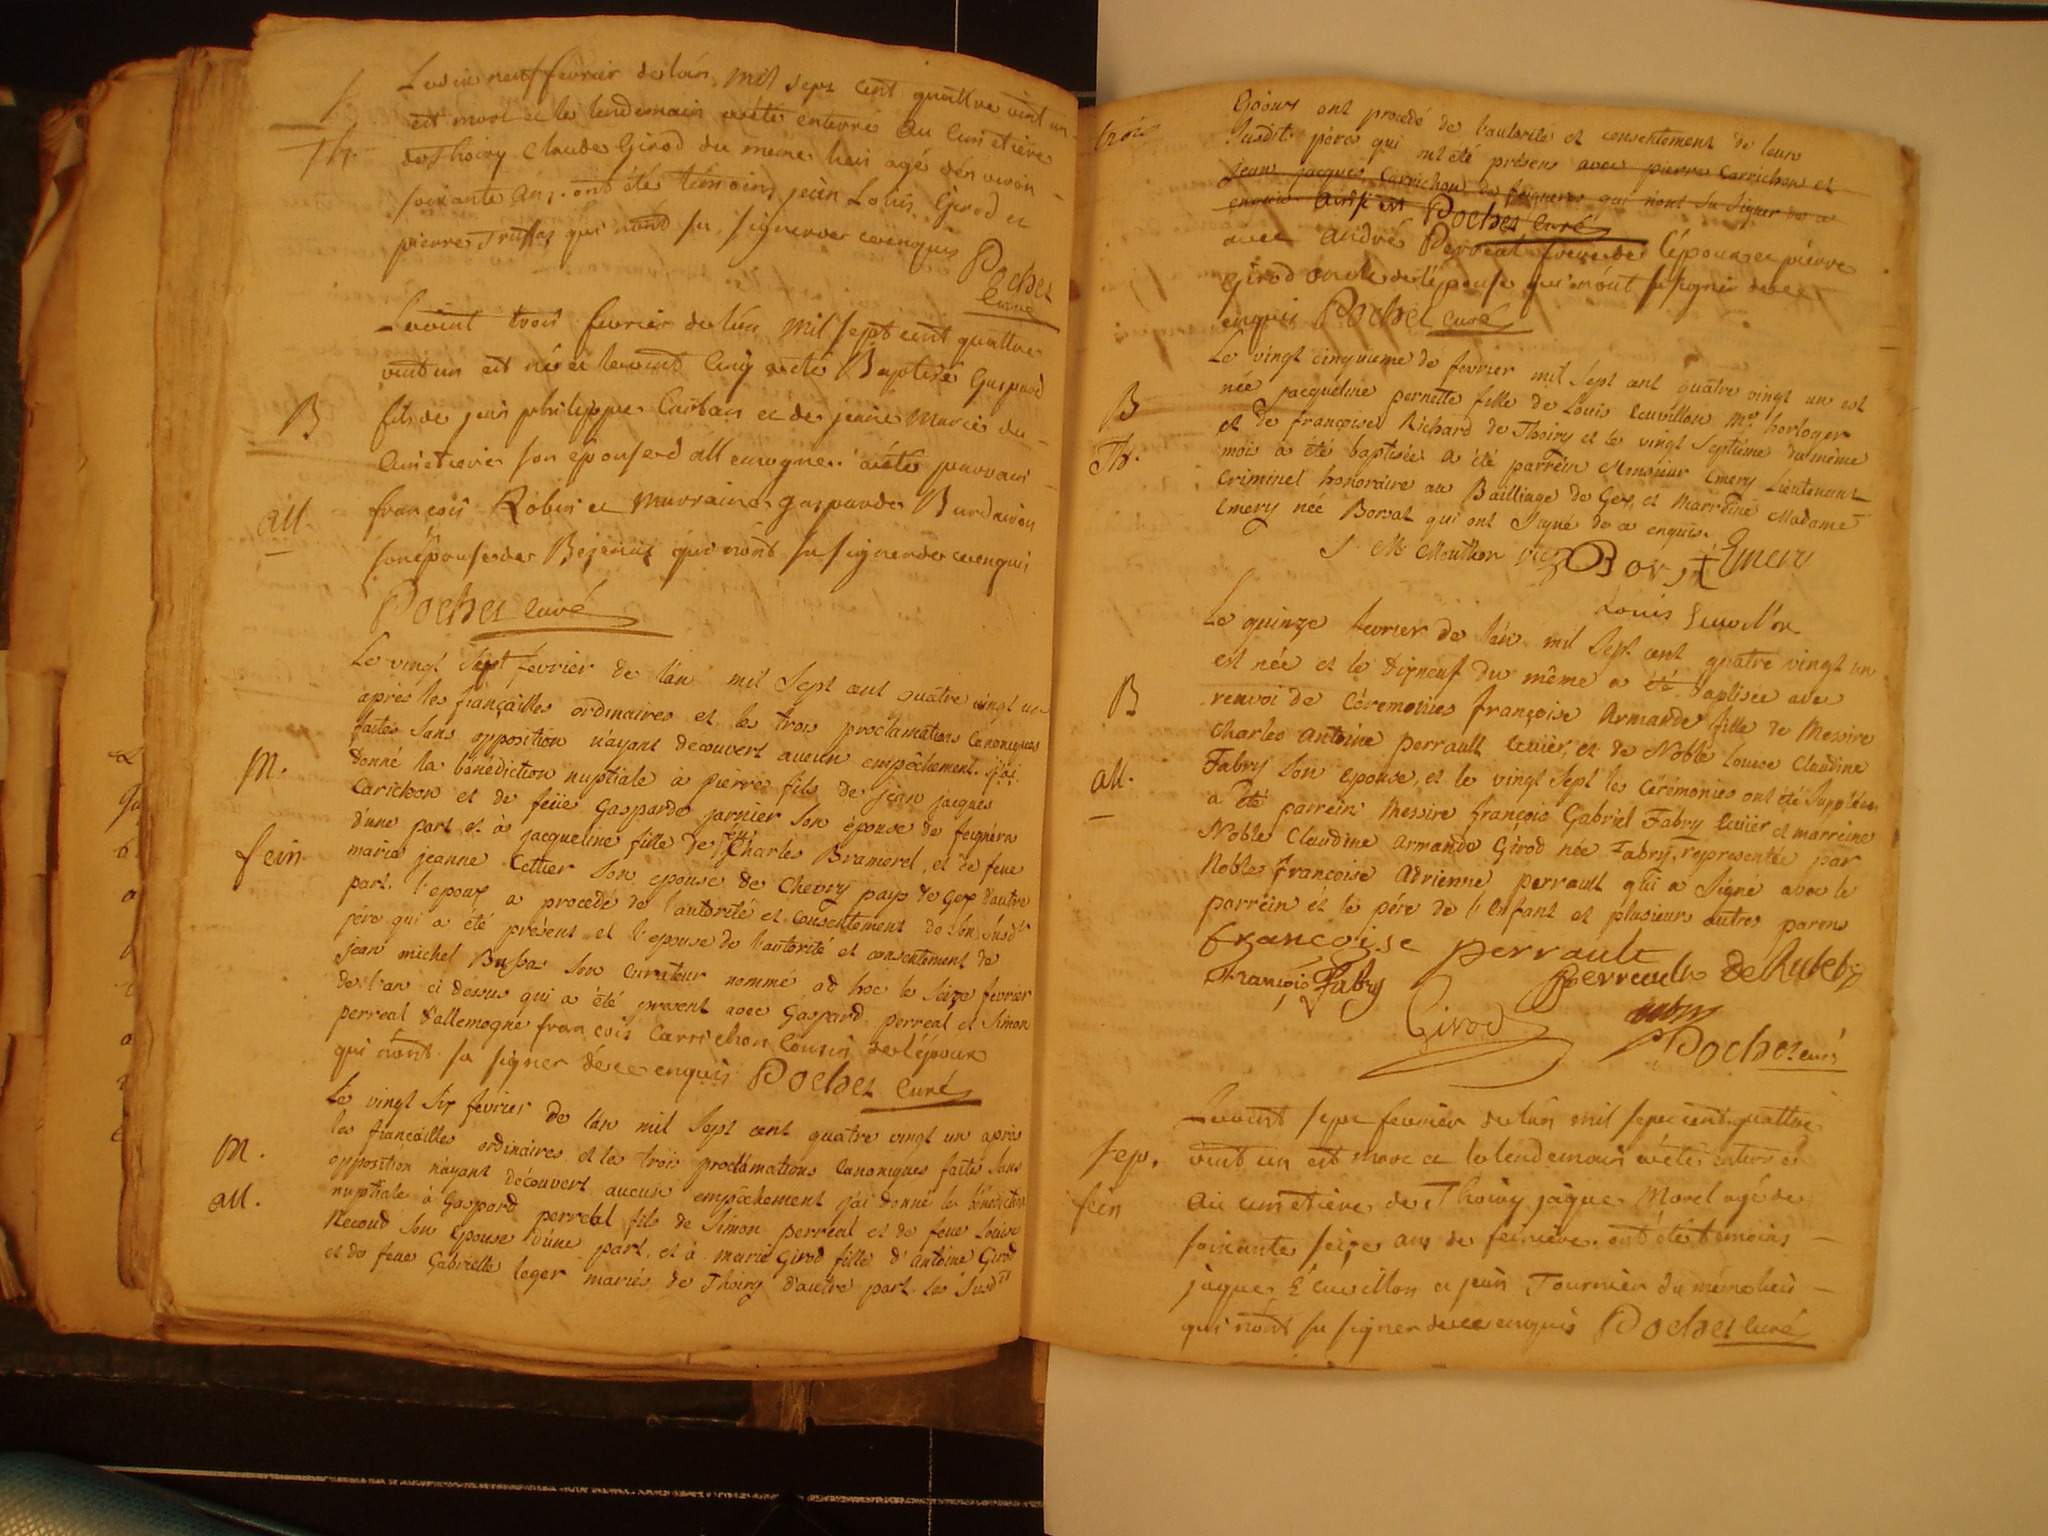 Le dix neuf fevrier de lán mil sept cent quattre vint un
est mort et le lendemain aété enterré au cimetière
Th.
de Thoiry Claude Girod du meme lieu agé dénviron
soixante ans. ont été témoins jean Louis Girod et
pierre qui nont su signer de ce enquis Pochet
curé
Le vint trois fevrier de lán mil sept cent quattre
vint un est né et le vint cinq aété Baptisé Gaspard
B
fils de jean philippe et de jeane Marie du
cimetiere son épouse d'allemogne. aété parrain
all.
françois Robin et marraine gasparde Burdairon
son épouse de qui nont su signer de ce enquis
Pochet curé
Le vingt sept fevrier de lán mil sept cent quatre vingt un
après les fiançailles ordinaires et les trois proclamations canoniques
faites sans opposition n'ayant decouvert aucun empêchement. j'ai
M.
donné la bénédiction nuptiale à pierre fils de jean jacques
Carichon et de feüe Gasparde jarnier son épouse de feigneres
d'une part et à jacqueline fille de feu Charles Bramerel, et de feue
fein
marie jeanne Cettier son epouse de Chevry pays de Gex d'autre
part. l'epoux a procédé de l'autorité et consentement de son susdt
père qui a été présent et l'epouse de l'autorité et consentement de
jean michel Bussas son curateur nommé ad hoc le seize fevrier
de l'an ci dessus qui a été present avec Gaspard perreal et Simon
perreal d'allemogne francois Carrichon cousin de lépoux
qui nont su signer de ce enquis Pochet curé
Le vingt six fevrier de lán mil sept cent quatre vingt un après
M.
les fiancailles ordinaires et les trois proclámations canoniques faites sans
opposition n'ayant découvert aucun empêchement j'ai donné la bénédiction
all.
nuptiale à Gaspard perreal fils de Simon perreal et de feue Louise
Recoud son épouse d'une part, et à marie Girod fille d'Antoine Girod
et de feue Gabrielle leger mariés de Thoiry d'autre part. les susdts
époux ont procédé de l'autorité et consentement de leurs
susdits pères qui ont été présens avec pierre Carrichon et
jean jacques Carrichon de feigneres qui n'ont su signer de ce
enquis Pochet curé
avec andré Perreal frere de l'époux et pierre
Girod oncle de l'épouse qui n'ont su signer de ce
enquis Pochet curé
Le vingt cinquieme de fevrier mil sept cent quatre vingt un est
B
née jacqueline pernette fille de Louis Cuvillon Me horloger
et de françoise Richard de Thoiry et le vingt septième du même
Th.
mois a été baptisée a été parrein Monsieur Emery Lieutenant
Criminel honoraire au Bailliage de Gex, et marrêine Madame
Emery née Borsat qui ont signé de ce enquis.
J. M. Mouthon vic Borsat Emery
Louis Cuvillon
Le quinze fevrier de lán mil sept cent quatre vingt un
est née et le dixneuf du même a été baptisée avec
B
renvoi de cérémonies françoise Armande fille de Messire
Charles antoine perrault ecuïer, et de Noble Louise Claudine
all.
Fabry son epouse, et le vingt sept les cérémonies ont été supplées
a été parrein Messire françois Gabriel Fabry ecuïer et marreine
Noble Claudine armande Girod née Fabry, representée par
Noble francoise adrienne perrault qui a signé avec le
parrein et le père de l'enfant et plusieurs autres parens
françoise perrault
françois Fabry Perrault de Ruleby
Girod
Pochet curé
Le vint sept fevrier de lán mil sept cent quattre
sep.
vint un est mort et le lendemain aété enterré
fein
au cimetière de Thoiry jaque Morel agé de
soixante seize ans de feiniere. ont été temoins
jaque Écuvillon et jean Tournier du même lieu
qui nont su signer de ce enquis Pochet curé